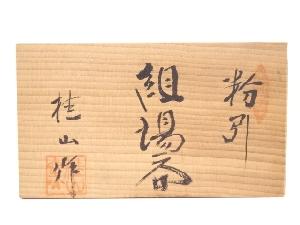 粉引
組湯呑
桂山作